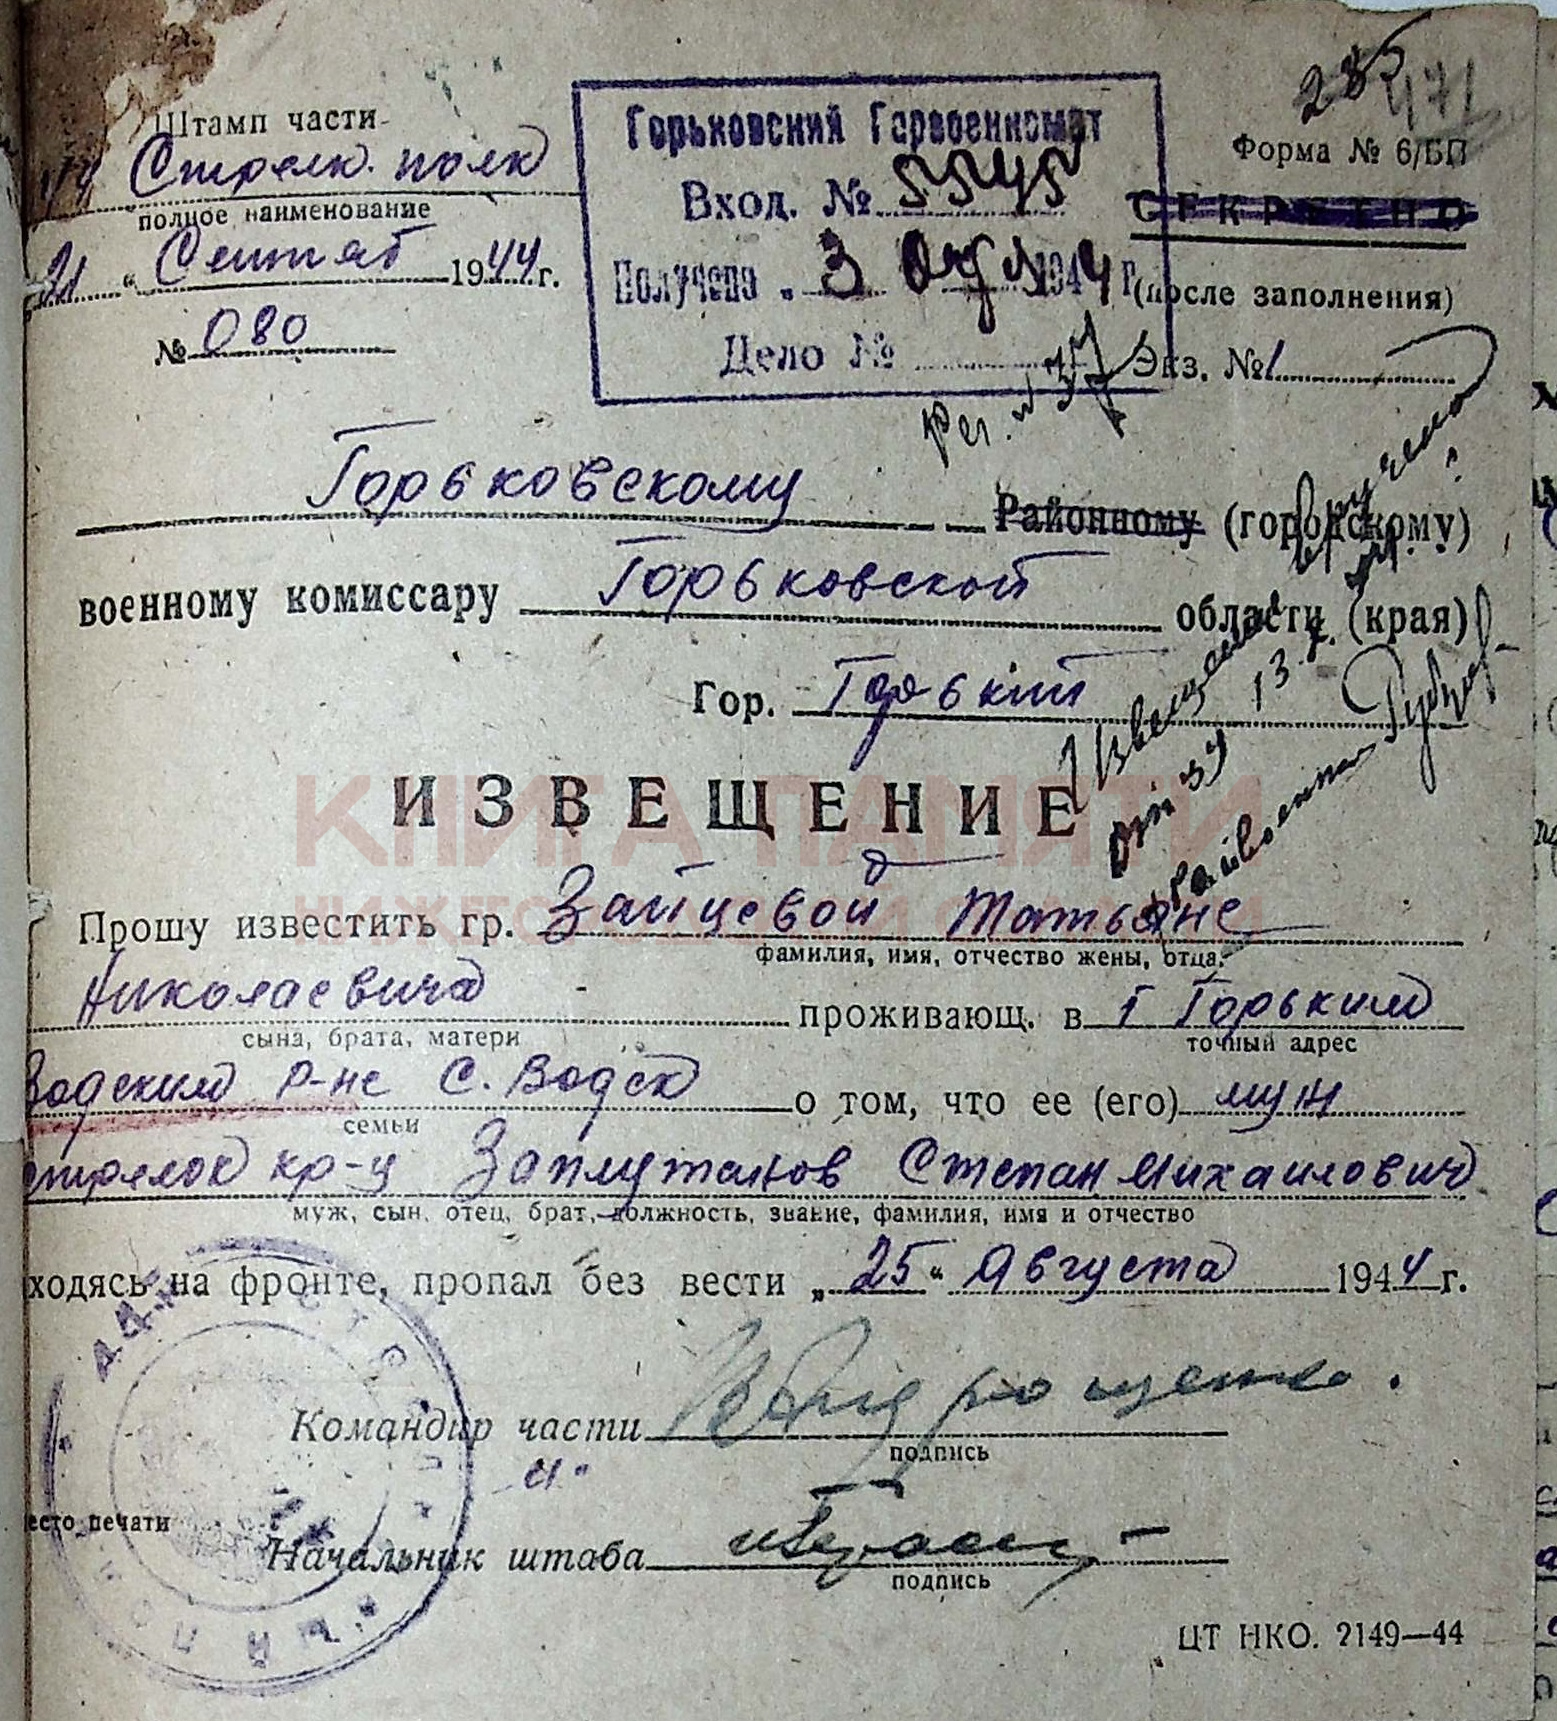 285
471
Штамп части
Стрелк. полк
полное наименование
21 " Сентяб 1944 г.
№ 080
Горьковский Горвоенкомат
Вход. № 5545
Получено „ 3 194 4 г.
Дело №
Рег. № 37
Форма № 6/БП
СЕКРЕТНО
(после заполнения)
Экз. № 1
Горьковскому Районному (городскому)
военному комиссару Горьковской области (края)
Гор. Горький
Извещение вручено
13.X.
ИЗВЕЩЕНИЕ
КНИГА ПАМЯТИ
Прошу известить гр. Зайцевой Татьяне
фамилия, имя, отчество жены, отца,
Николаевича проживающ. в г Горьким
сына, брата, матери точный адрес
Водским р-не с. Водск о том, что ее (его) муж
семьи
стрелок кр-ц Заплутанов Степан Михаилович
муж, сын, отец, брат, должность, звание, фамилия, имя и отчество
ходясь на фронте, пропал без вести „ 25 " Августа 194 4 г.
Командир части
подпись
есто печати
Начальник штаба
подпись
ЦТ НКО. 2149—44